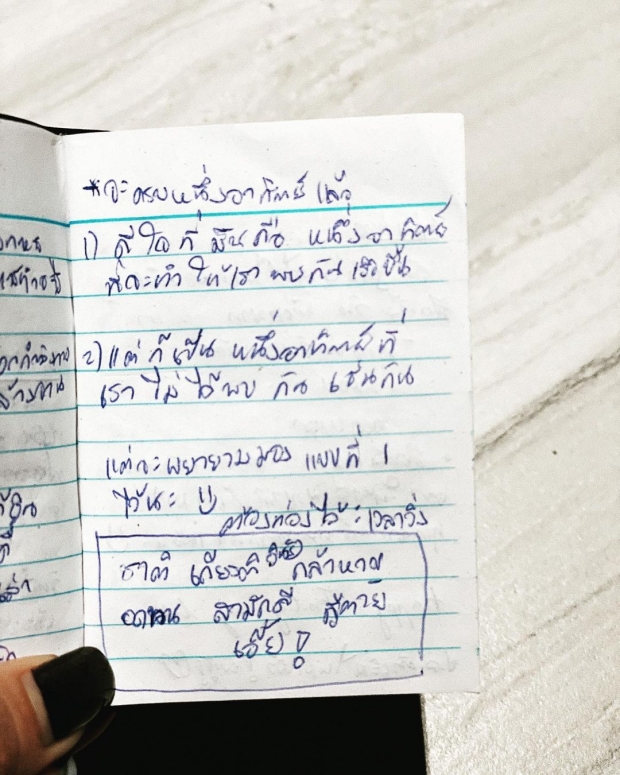 *จะครบหนึ่งอาทิตย์แล้ว
1) ดีใจที่ มันคือ หนึ่งอาทิตย์
ที่จะทำให้เราพบกันเร็วขึ้น
2) แต่ก็เป็น หนึ่งอาทิตย์ที่
เราไม่ได้พบ กัน เช่นกัน
แต่จะพยายามมอง แบบที่ 1
ไว้นะ
ต้องท่องไว้ : เวลาวิ่ง
ชาติ เกียรติ วินัย กล้าหาญ
อดทน สามัคคี สู้ตาย
เฮ้ย!